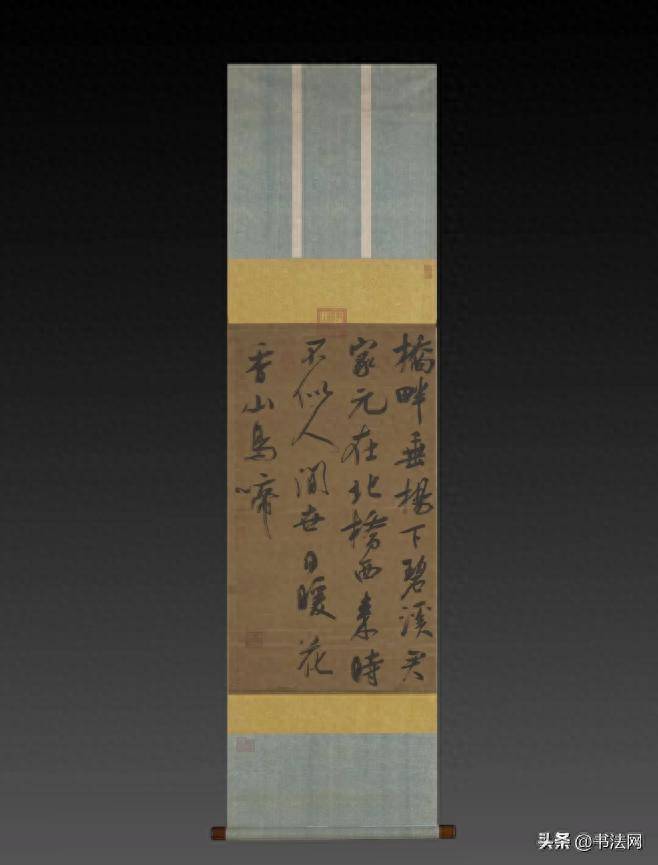 橋畔垂楊下碧溪君
家元在北橋西來時
不似人間世日暖花
香山鳥啼
头条 @书法网